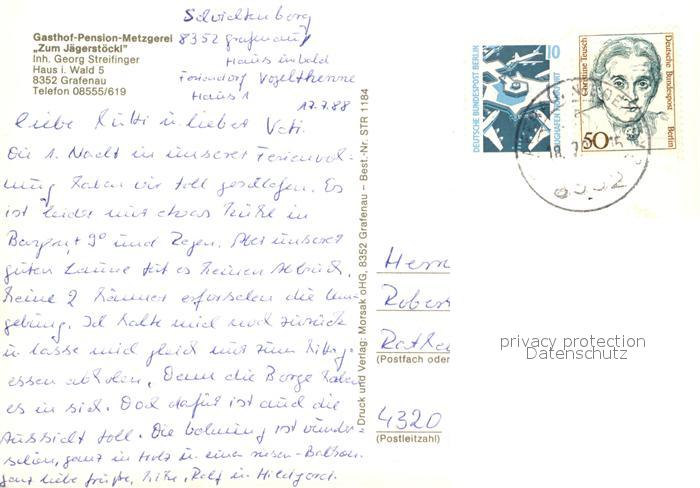 Gasthof-Pension-Metzgerei
"Zum Jägerstöckl"
Inh. Georg Streifinger
Haus i. Wald 5
8352 Grafenau
Telefon 08555/619
8352 Grafenau/
Haus im Wald
Feriendorf
Haus 1
17.7.88
Liebe Mutti u. lieber Vati.
Die 1. Nacht in unserer Ferienwoh-
nung haben wir toll geschlafen. Es
ist leider nur etwas kühl in
Bayern + 9° und Regen. Aber unserer
guten Laune tut es keinen Abbruch.
Meine 2 Männer erforschen die Um-
gebung. Ich halte mich noch zurück
u. lasse mich gleich nur zum Mittag-
essen abholen. Denn die Berge haben
es in sich. Doch dafür ist auch die
Aussicht toll. Die Wohnung ist wunder-
schön, ganz in Holz u. einen riesen-Balkon.
Ganz liebe Grüße, Ralf
Druck und Verlag: Morsak oHG, 8352 Grafenau – Best.-Nr. STR 1184
DEUTSCHE BUNDESPOST BERLIN
10
FLUGHAFEN FRANKFURT
Christine Teusch
Deutsche Bundespost
Berlin
50
8352
Herrn
Rober
(Postfach oder
4320
(Postleitzahl)
privacy protection
Datenschutz